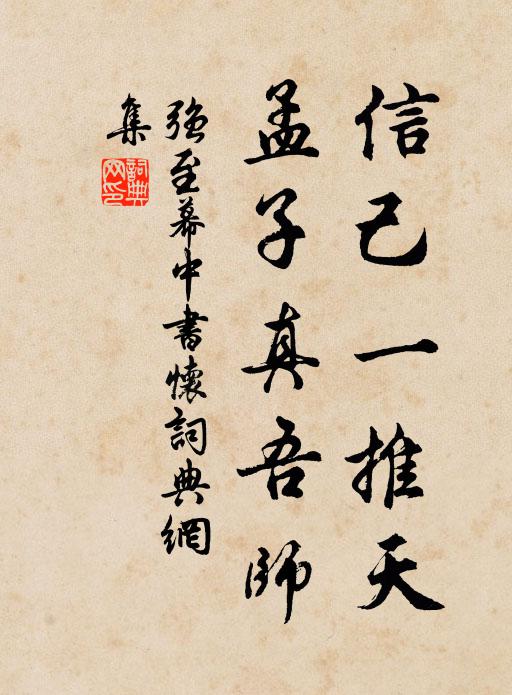 信己一推天
孟子真吾師
強至幕中書懷詞典網
集
詞典
网印